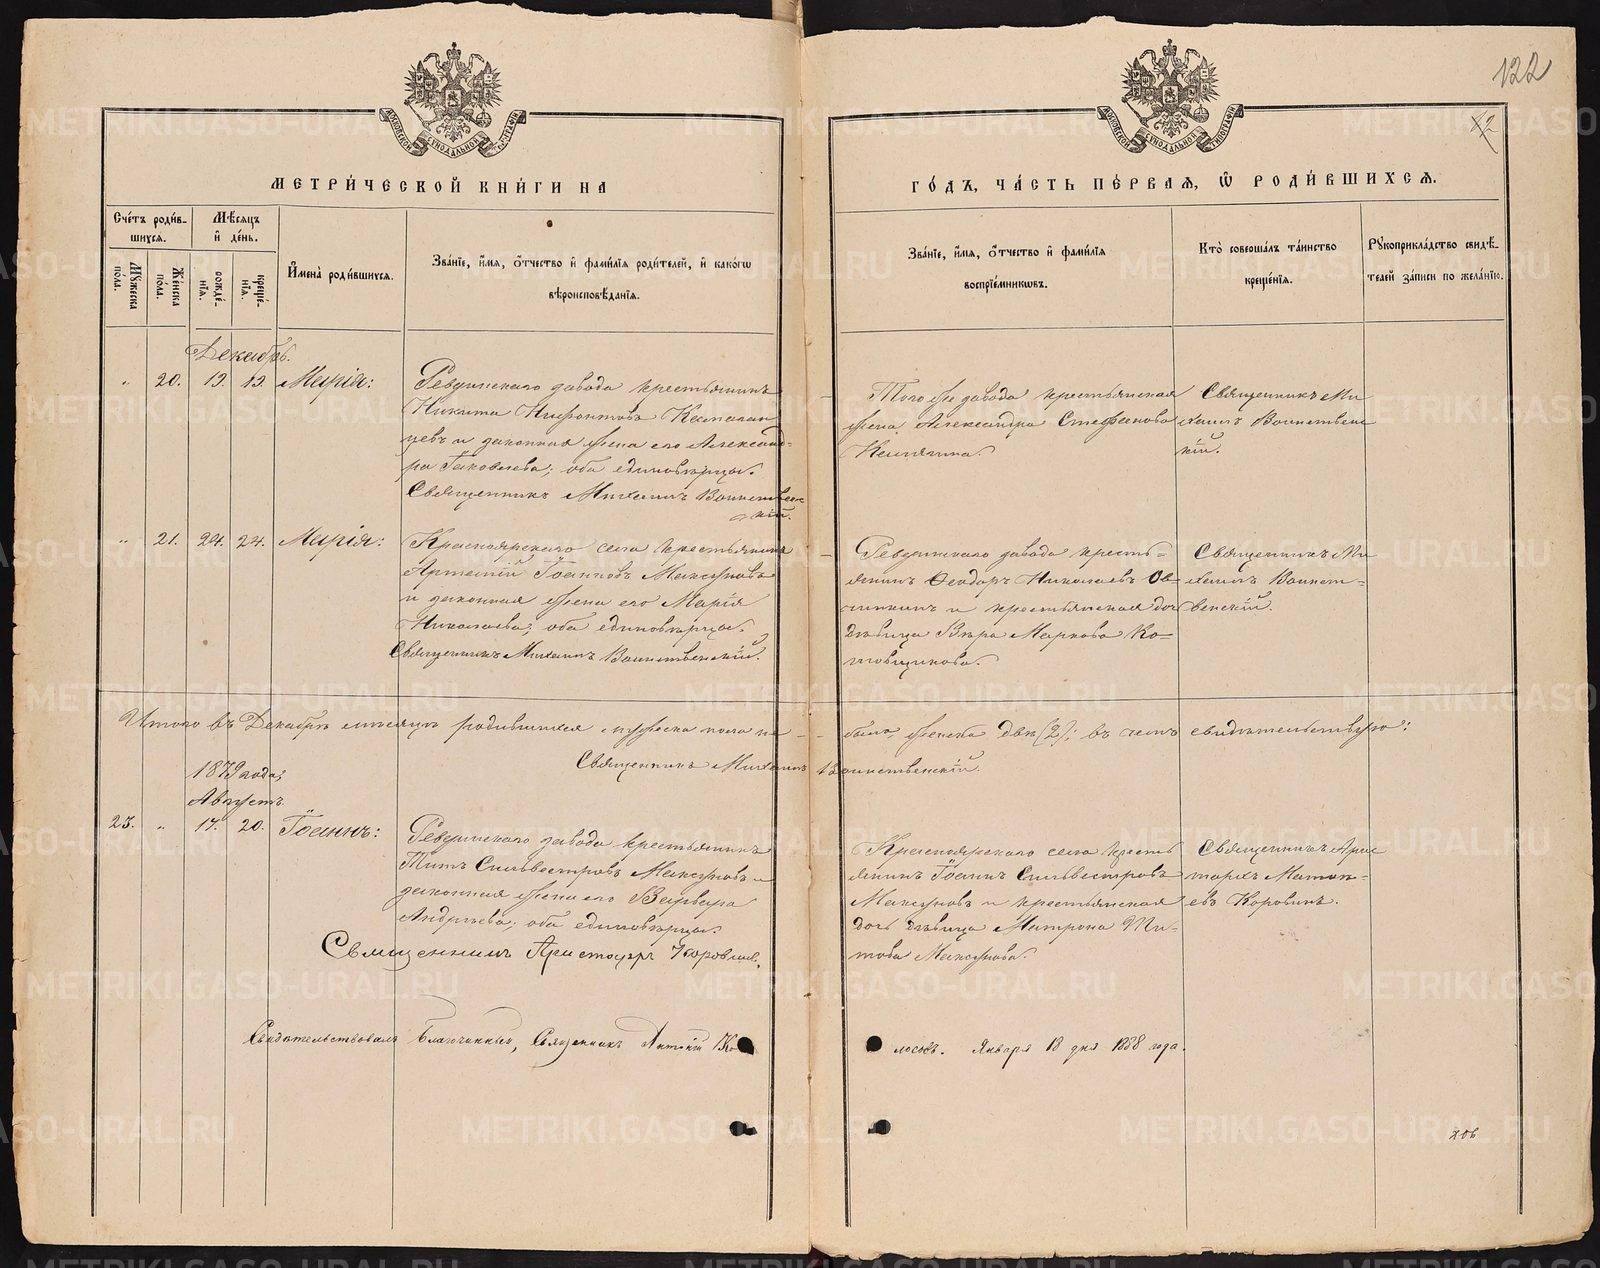 122
МОСКОВСКОЙ СѴНОДАЛЬНОЙ ТИПОГРАФІИ
МОСКОВСКОЙ СѴНОДАЛЬНОЙ ТИПОГРАФІИ
МЕТРИ́ЧЕСКОЙ КНИ́ГИ НА
ГО́ДЪ, ЧА́СТЬ ПЕ́РВАЯ, Ѡ҆ РОДИ́ВШИХСЯ.
Сче́тъ роди́в-
шихся.
Мѣ́сяцъ
и҆ де́нь.
Мꙋ́жеска
по́ла.
Же́нска
по́ла.
рожде́-
нїя.
креще́-
нїя.
И҆мена̀ роди́вшихся.
Зва́нїе, и҆́мя, ѻ҆́тчество и҆ фами́лїя роди́телей, и҆ како́гѡ
вѣроисповѣ́данїя.
Зва́нїе, и҆́мя, ѻ҆́тчество и҆ фами́лїя
воспрїе́мникѡвъ.
Кто̀ соверша́лъ та́инство
креще́нїя.
Рꙋкоприкла́дство свидѣ́-
телей за́писи по жела́нїю.
Декабрь.
" 20. 19. 19. Марія:
Ревдинскаго завода крестьянинъ
Никита Нифонтовъ
и законная жена его Александ-
ра Іаковлева; оба единовѣрцы.
Священникъ Михаилъ Воинствен-
скій.
Того же завода крестьянская
жена Александра Стефанова
Священникъ Ми-
хаилъ Воинствен-
скій.
" 21. 24. 24. Марія:
Красноярскаго села крестьянинъ
Артемій Іоанновъ Мокруновъ
и законная жена его Марія
Николаева; оба единовѣрцы.
Священникъ Михаилъ Воинственскій.
Ревдинскаго завода кресть-
янинъ Ѳеодоръ Николаевъ
и крестьянская дочь
дѣвица Вѣра Маркова
Священникъ Ми-
хаилъ Воинст-
венскій.
Итого въ Декабрѣ мѣсяцѣ родившихся мужеска пола не было, женска двѣ (2); въ чемъ свидѣтельствую:
Священникъ Михаилъ Воинственскій.
1879 года,
Августъ
23. " 17. 20. Іоаннъ:
Ревдинскаго завода крестьянинъ
Титъ Сильвестровъ и
законная жена его Варвара
Андреева; оба единовѣрцы.
Священникъ Аристархъ Коровинъ.
Красноярскаго села кресть-
янинъ Іоаннъ Сильвестровъ
и крестьянская
дочь дѣвица Матрона Ти-
това
Священникъ Арис-
тархъ
Коровинъ.
Свидѣтельствовалъ Благочинный, Священникъ Антоній
Января 18 дня 1888 года.
METRIKI.GASO-URAL.RU